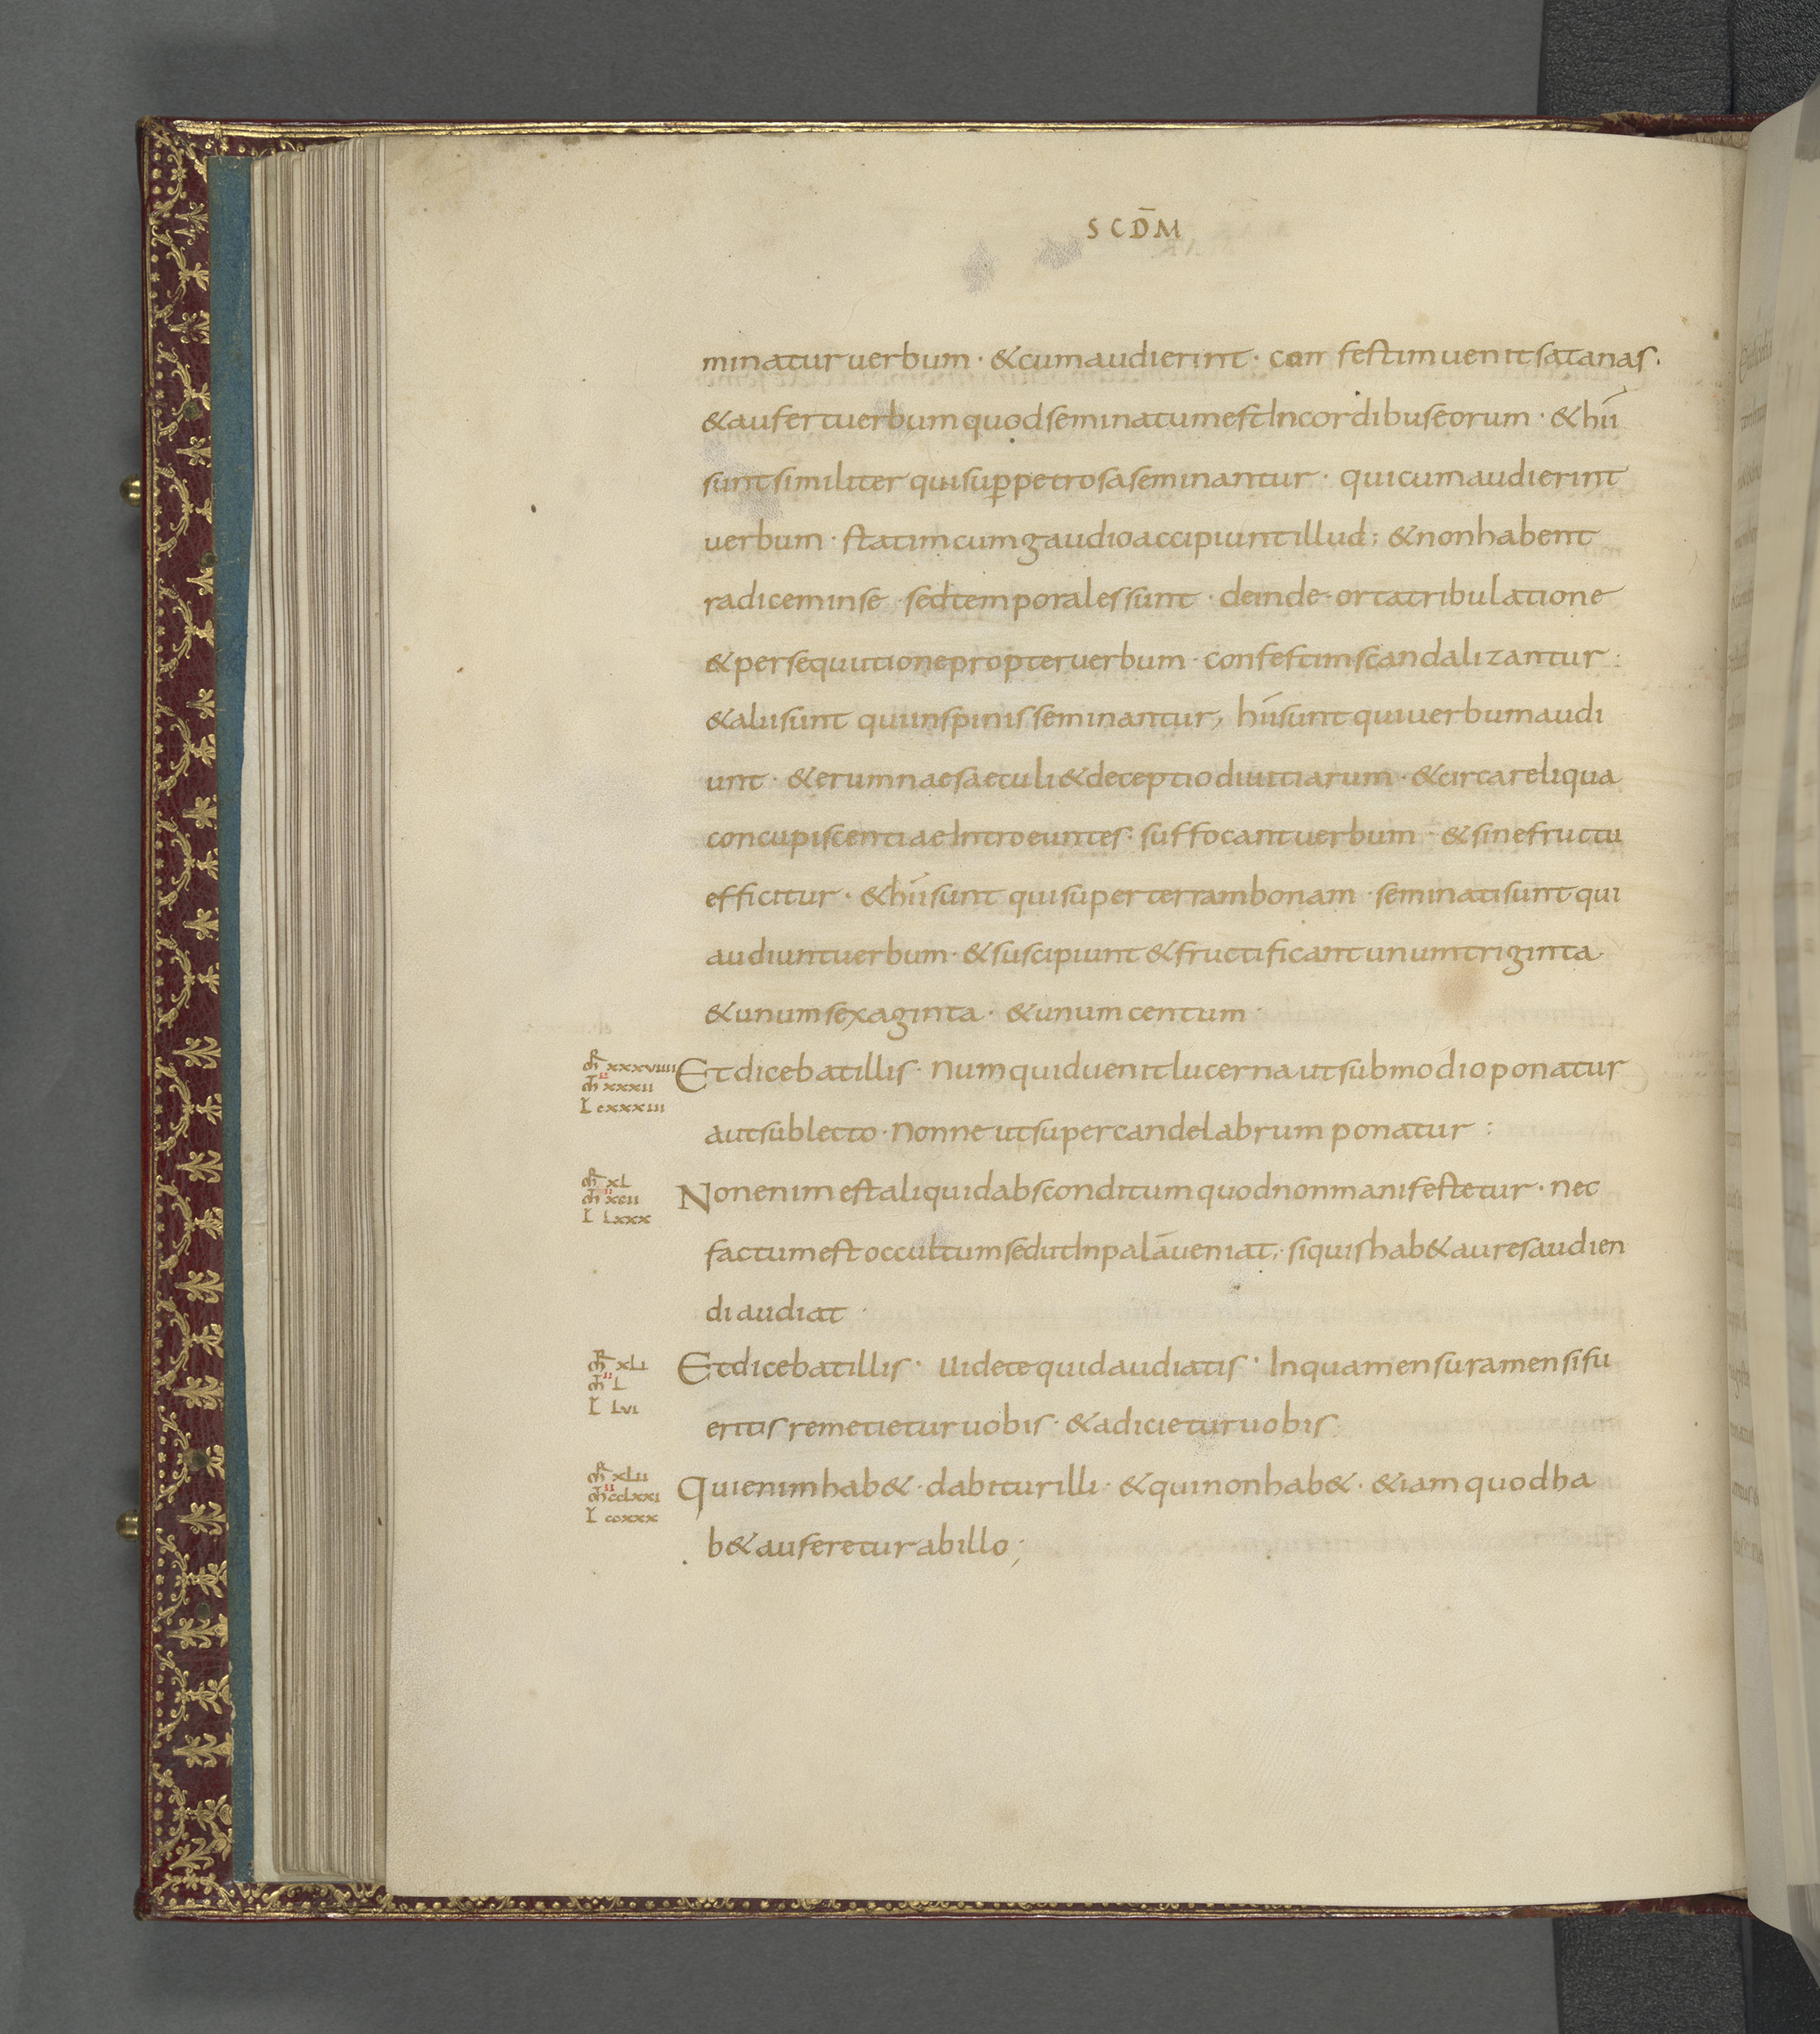 SCD̄M
minatur uerbum · & cum audierint · con festim uenit satanas ·
& aufert uerbum quod seminatum est In cordibus eorum · & hii
sunt similiter qui sup petrosa seminantur · qui cum audierint
uerbum · statim cum gaudio accipiunt illud ; & non habent
radicem in se · sed temporales sunt · deinde · orta tribulatione
& persequutione propter uerbum · confestim scandalizantur :
& alii sunt qui in spinis seminantur , hii sunt qui uerbum audi
unt · & erumnae saeculi & deceptio diuitiarum · & circa reliqua
concupiscentiae Introeuntes · suffocant uerbum · & sine fructu
efficitur · & hii sunt qui super terram bonam · seminati sunt qui
audiunt uerbum · & suscipiunt & fructificant unum triginta ·
& unum sexaginta · & unum centum ·
m̄r xxxviiii
m̄ xxxii
L cxxxiii
Et dicebat illis · Numquid uenit lucerna ut sub modio ponatur
aut sub lecto · Nonne ut super candelabrum ponatur :
m̄r xL
m̄ xcii
L Lxxx
Non enim est aliquid absconditum quod non manifestetur · nec
factum est occultum sed ut In palā ueniat ; si quis hab& aures audien
di audiat ·
m̄r xLI
m̄ L
L Lvi
Et dicebat illis · Uidete quid audiatis · In qua mensura mensi fu
eritis remetietur uobis · & adicietur uobis
m̄r xLii
m̄ ccLxxi
L ccxxx
Qui enim hab& · dabitur illi · & qui non hab& · &iam quod ha
b& auferetur ab illo ;